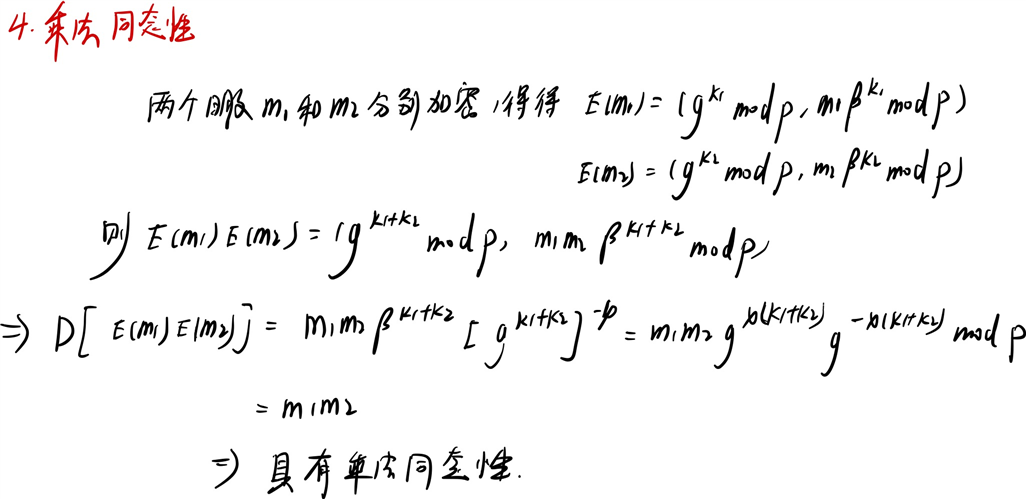 4. 乘法同态性
两个明文 m₁ 和 m₂ 分别加密,得 E(m₁) = (g^{k₁} mod p, m₁β^{k₁} mod p)
E(m₂) = (g^{k₂} mod p, m₂β^{k₂} mod p)
则 E(m₁)E(m₂) = (g^{k₁+k₂} mod p, m₁m₂ β^{k₁+k₂} mod p)
⇒ D[E(m₁)E(m₂)] = m₁m₂β^{k₁+k₂}[g^{k₁+k₂}]^{-x} = m₁m₂g^{x(k₁+k₂)}g^{-x(k₁+k₂)} mod p
= m₁m₂
⇒ 具有乘法同态性.